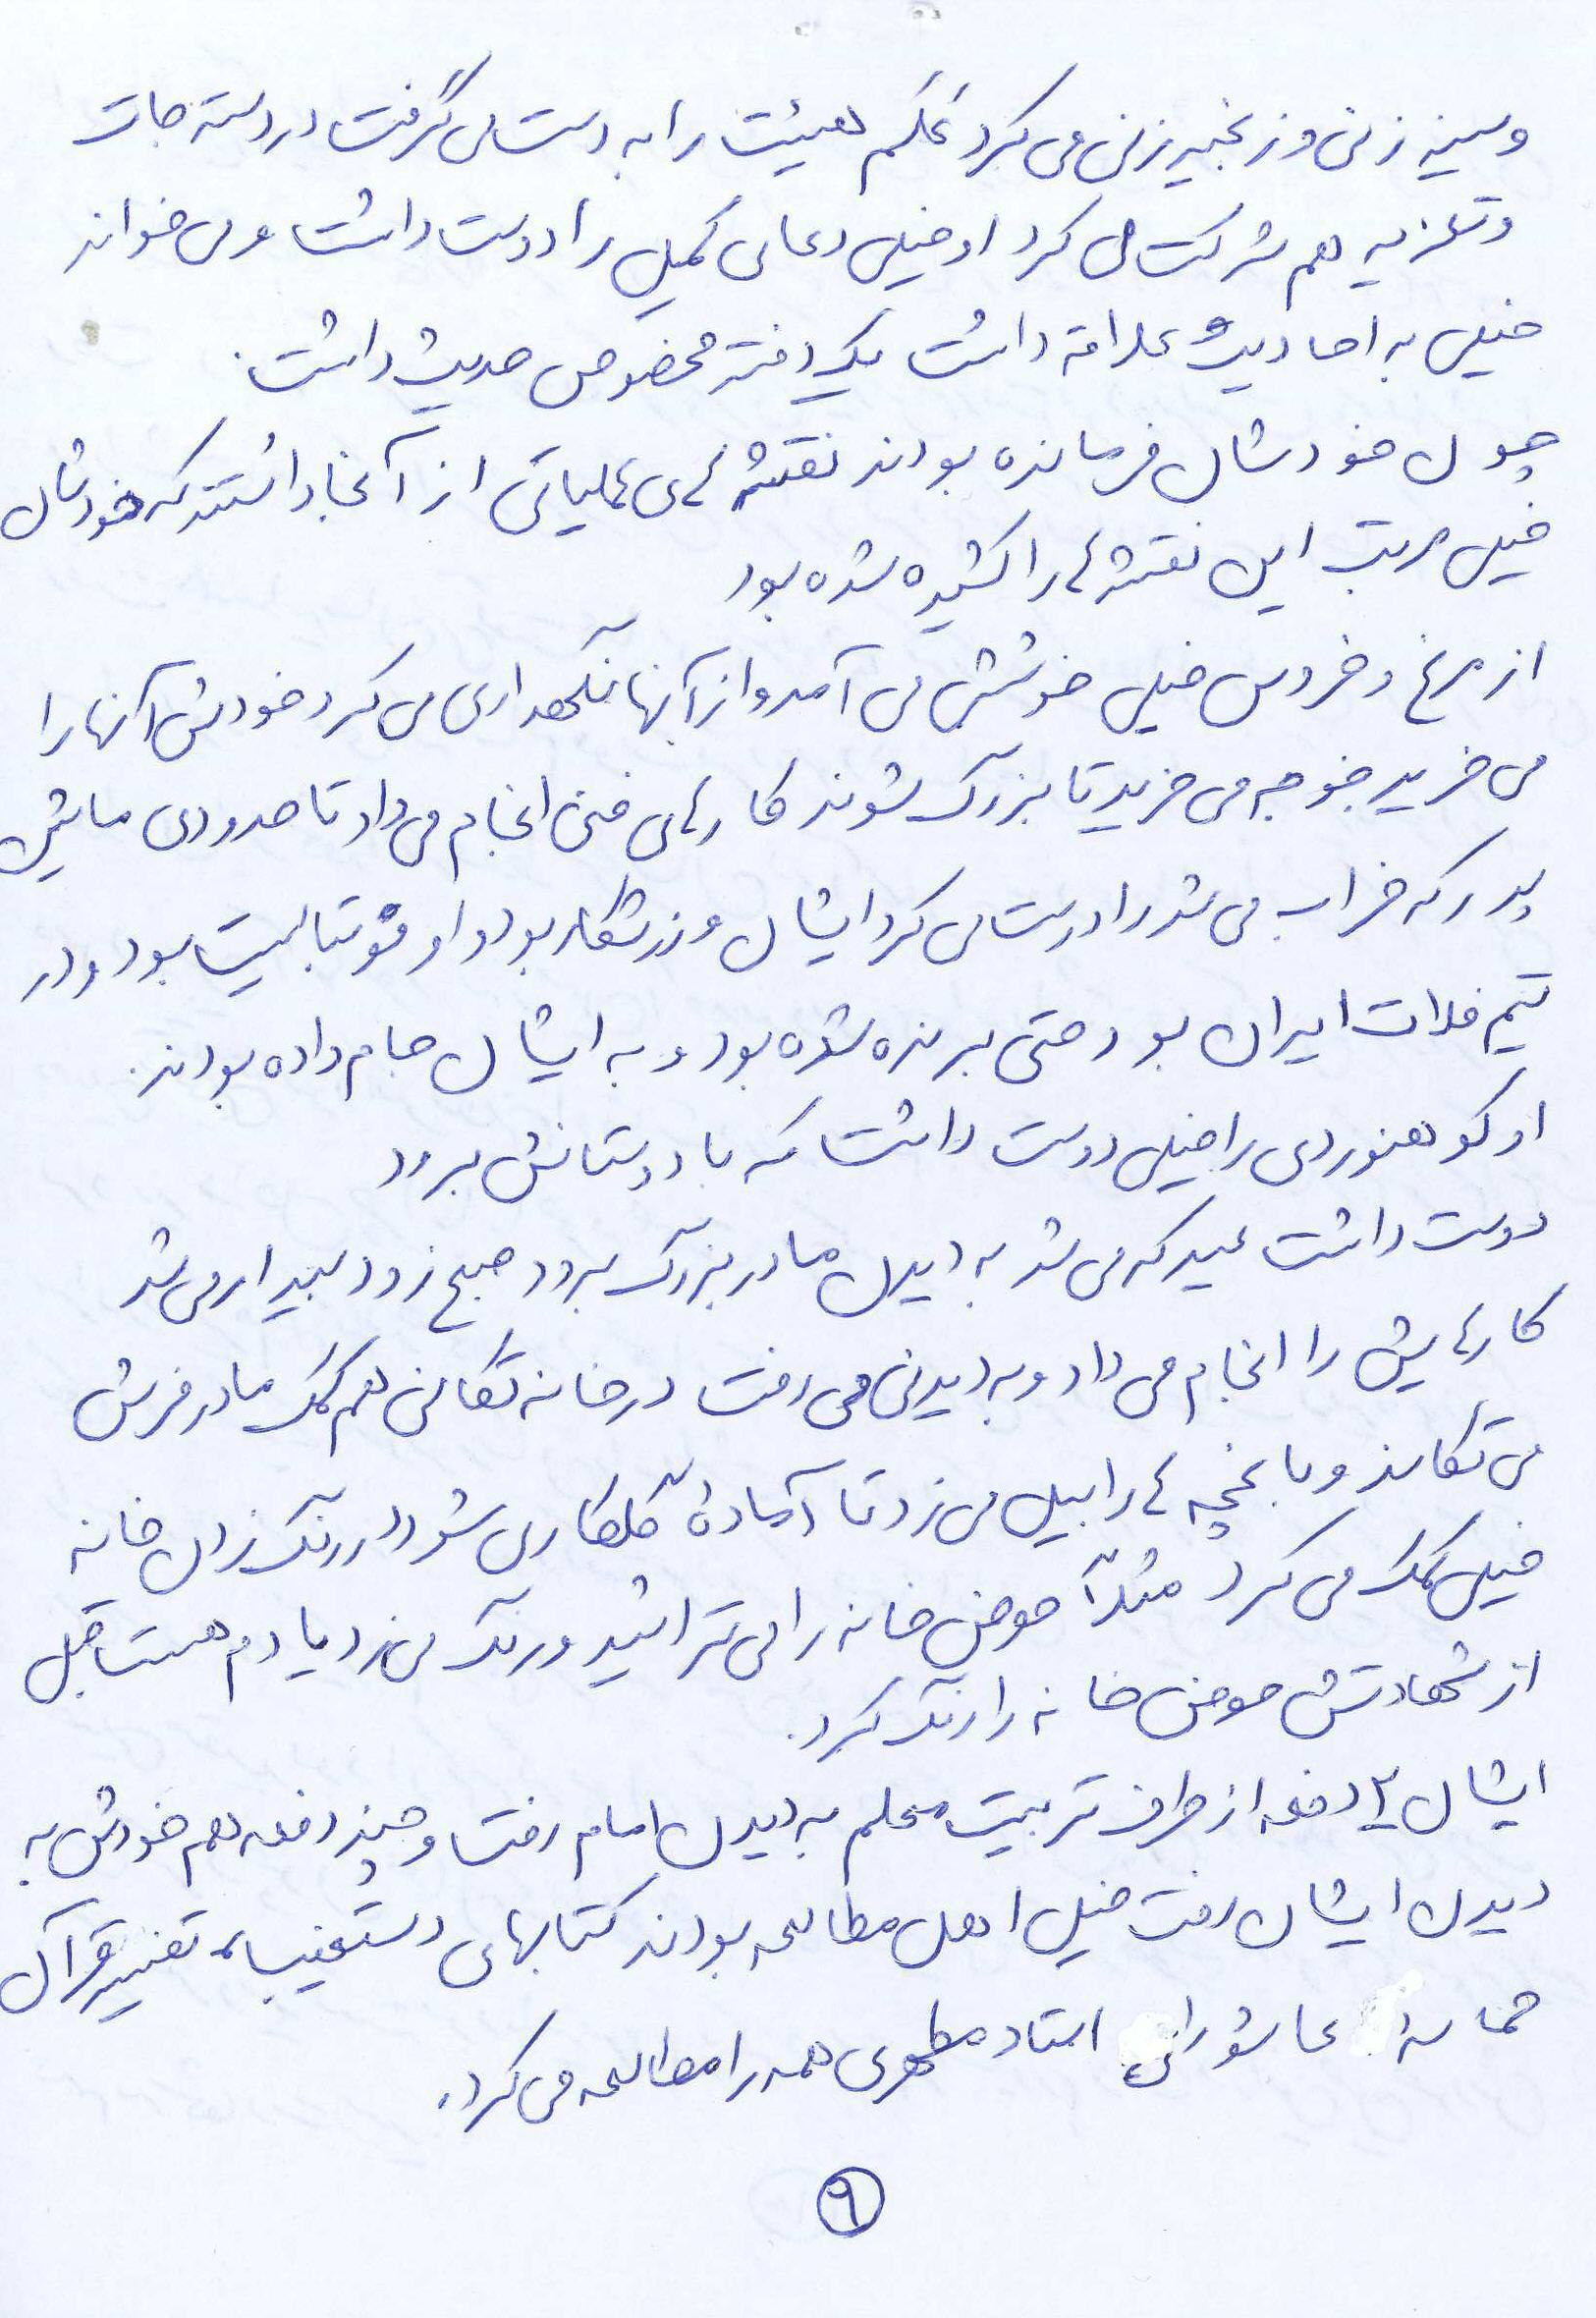 و سینه زنی و زنجیر زنی می کرد عَلَم هیئت را به دست می گرفت در دسته جات
و تعزیه هم شرکت می کرد او خیلی دعای کمیل را دوست داشت و می خواند
خیلی به احادیث علاقه داشت یک دفتر مخصوص حدیث داشت.
چون خودشان فرمانده بودند نقشه های عملیاتی از آنجا داشتند که خودشان
خیلی مرتب این نقشه ها را کشیده شده بود
از مرغ و خروس خیلی خوشش می آمد و از آنها نگهداری می کرد خودش آنها را
می خرید جوجه می خرید تا بزرگ شوند کارهای فنی انجام می داد تا حدودی ماشین
پدر که خراب می شد را درست می کرد ایشان ورزشکار بود و او فوتبالیست بود و در
تیم فلات ایران بود حتی برنده شده بود و به ایشان جام داده بودند.
او کوهنوردی را خیلی دوست داشت که با دوستانش برود
دوست داشت عید که می شد به دیدن مادربزرگ برود صبح زود بیدار می شد
کارهایش را انجام می داد و به دیدنی می رفت در خانه تکانی هم کمک مادر فرش
می تکاند و باغچه ها را بیل می زد تا آمادهٔ گلکاری شود در رنگ زدن خانه
خیلی کمک می کرد مثلاً حوض خانه را می تراشید و رنگ می زد یادم هست قبل
از شهادتش حوض خانه را رنگ کرد.
ایشان ۲ دفعه از طرف تربیت معلم به دیدن امام رفت و چند دفعه هم خودش به
دیدن ایشان رفت خیلی اهل مطالعه بودند کتابهای دستغیب، تفسیر قرآن
حماسهٔ عاشورای استاد مطهری همه را مطالعه می کرد.
۹